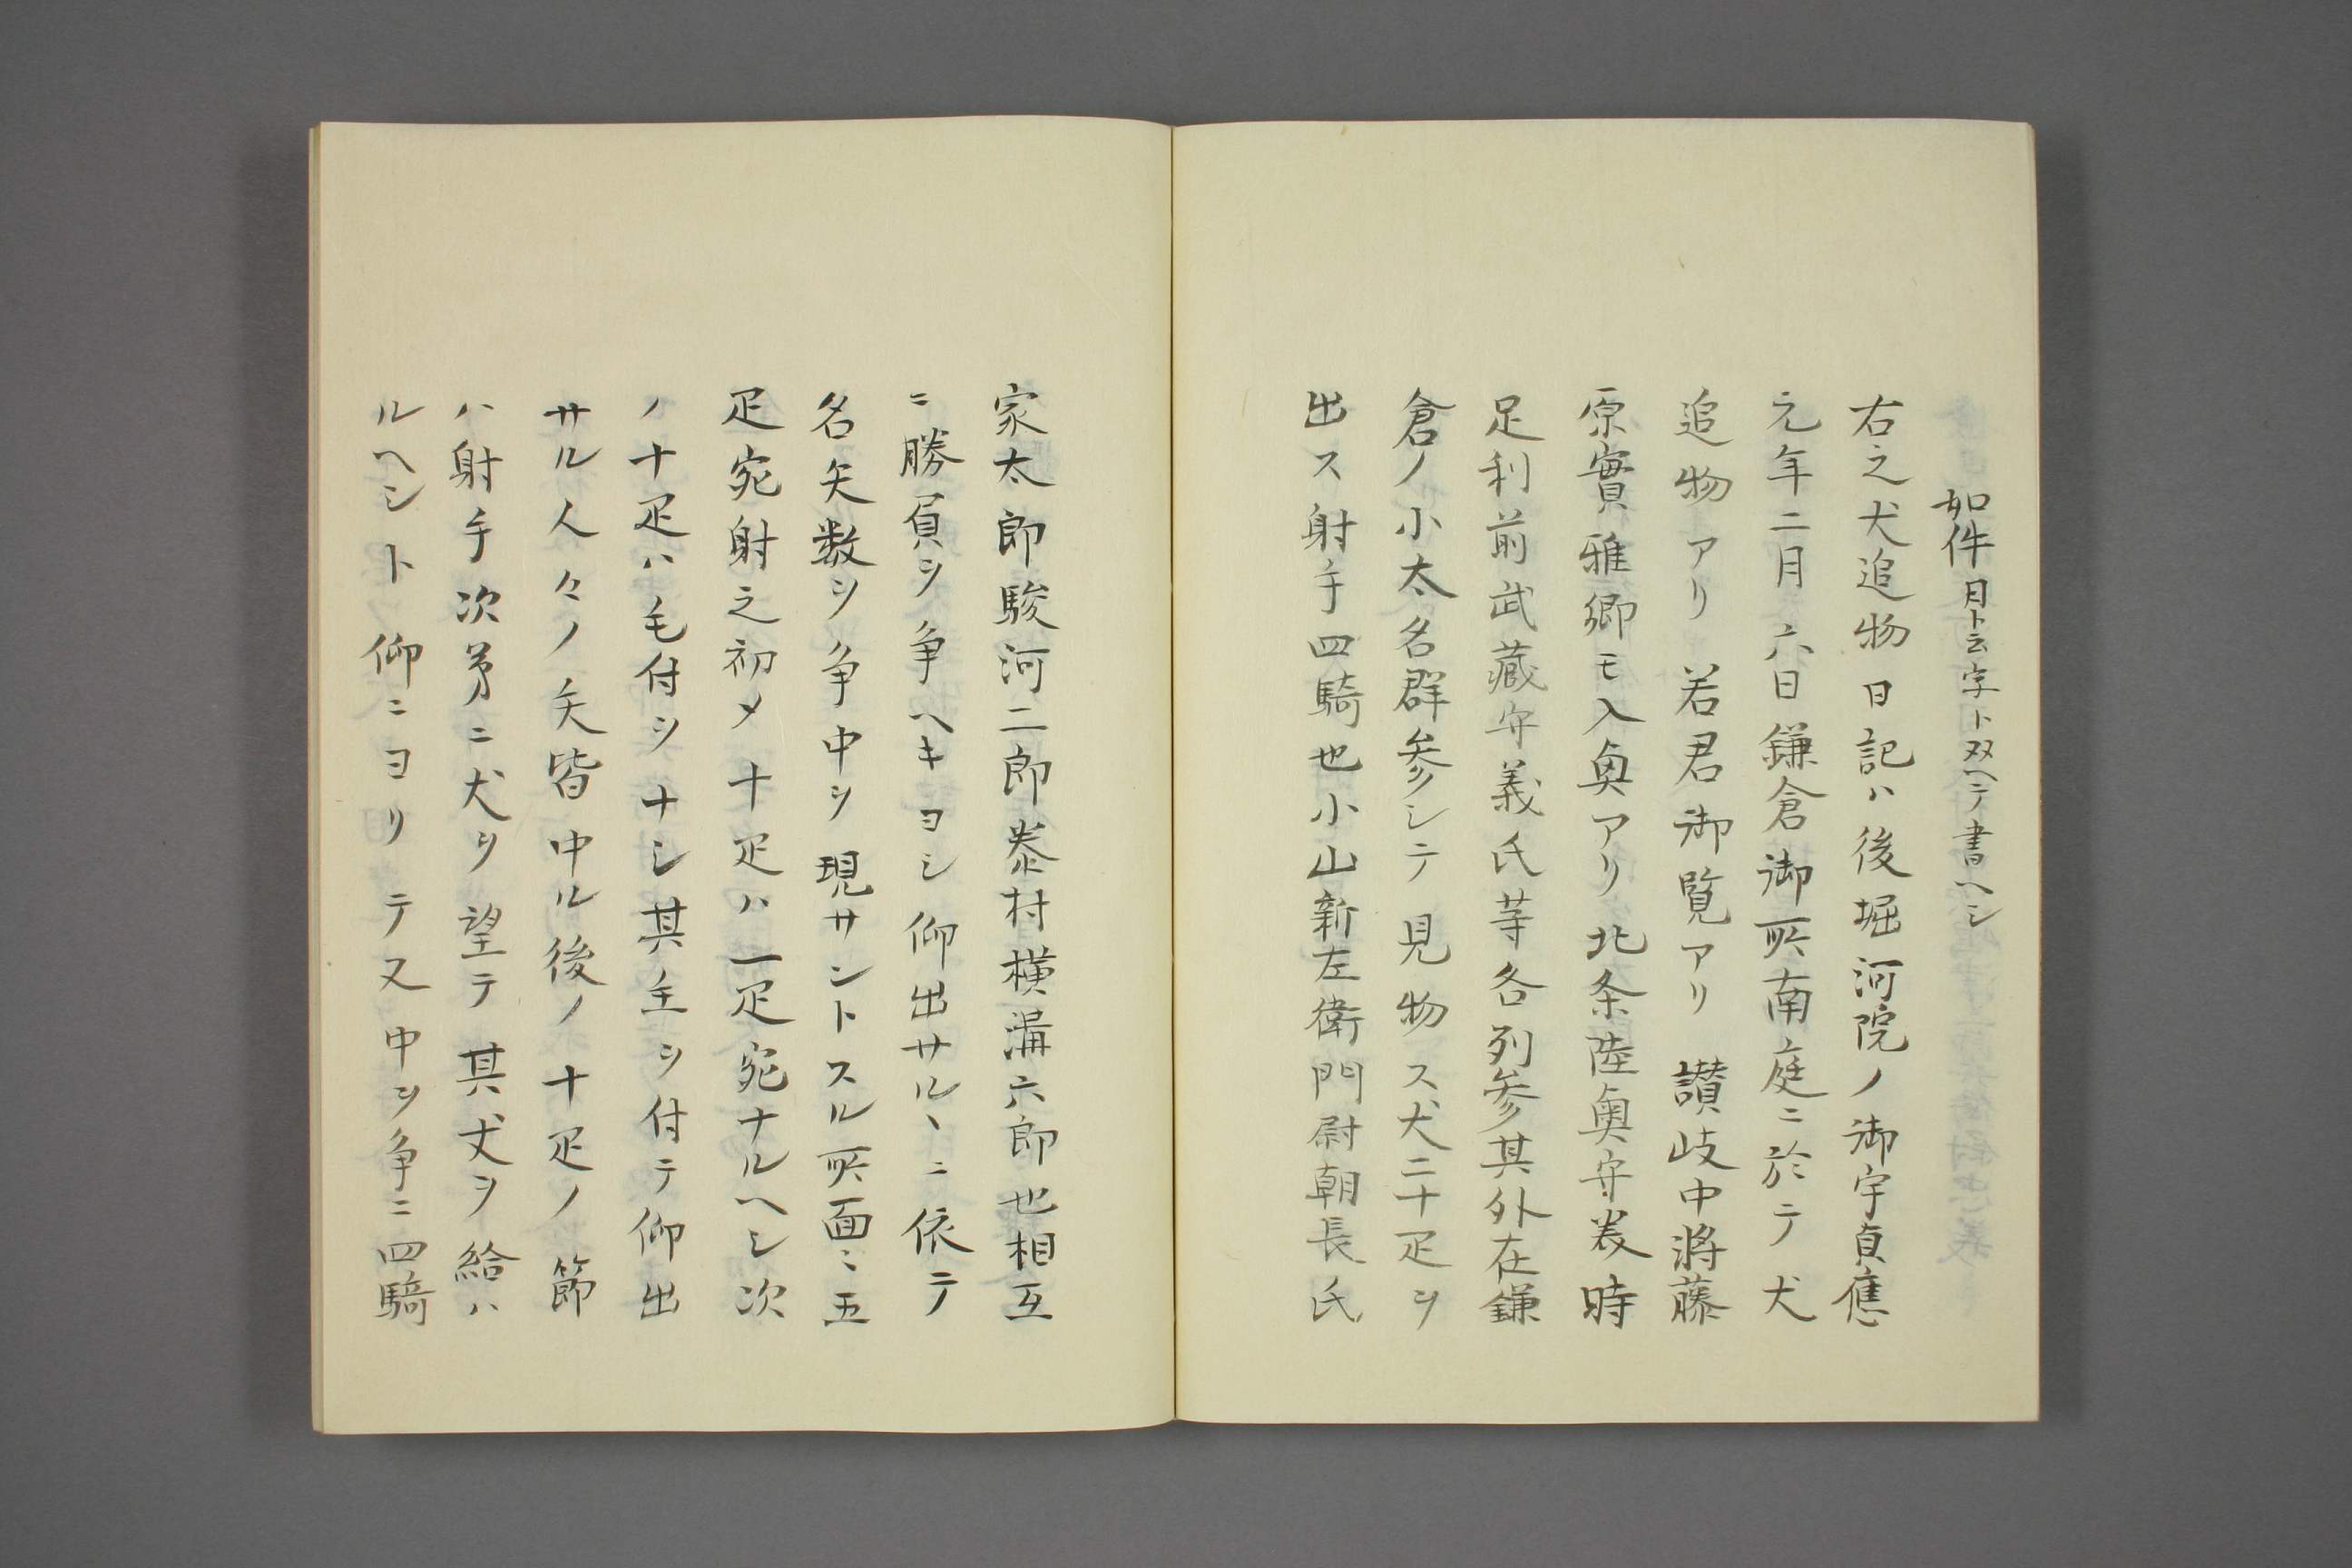 如件 月ト云字ト双ヘテ書ヘシ
右之犬追物日記ハ後堀河院ノ御宇貞應
元年二月六日鎌倉御所南庭ニ於テ犬
追物アリ若君御覧アリ讃岐中將藤
原實雅卿モ入奥アリ北条陸奥守義時
足利前武藏守義氏等各列参其外在鎌
倉ノ小太名群参シテ見物ス犬二十疋ヲ
出ス射手四騎也小山新左衛門尉朝長氏
家太郎駿河二郎泰村横溝六郎也相互
ニ勝負ヲ争ヘキヨシ仰出サルヽニ依テ
名矢数ヲ争中ヲ現サントスル所面〻五
疋宛射之初メ十疋ハ一疋宛ナルヘシ次
ノ十疋ハ毛付ヲナシ其主ヲ付テ仰出
サル人々ノ矢皆中ル後ノ十疋ノ節
ハ射手次第ニ犬ヲ望テ其犬ヲ給ハ
ルヘシト仰ニヨリテ又中ヲ争ニ四騎